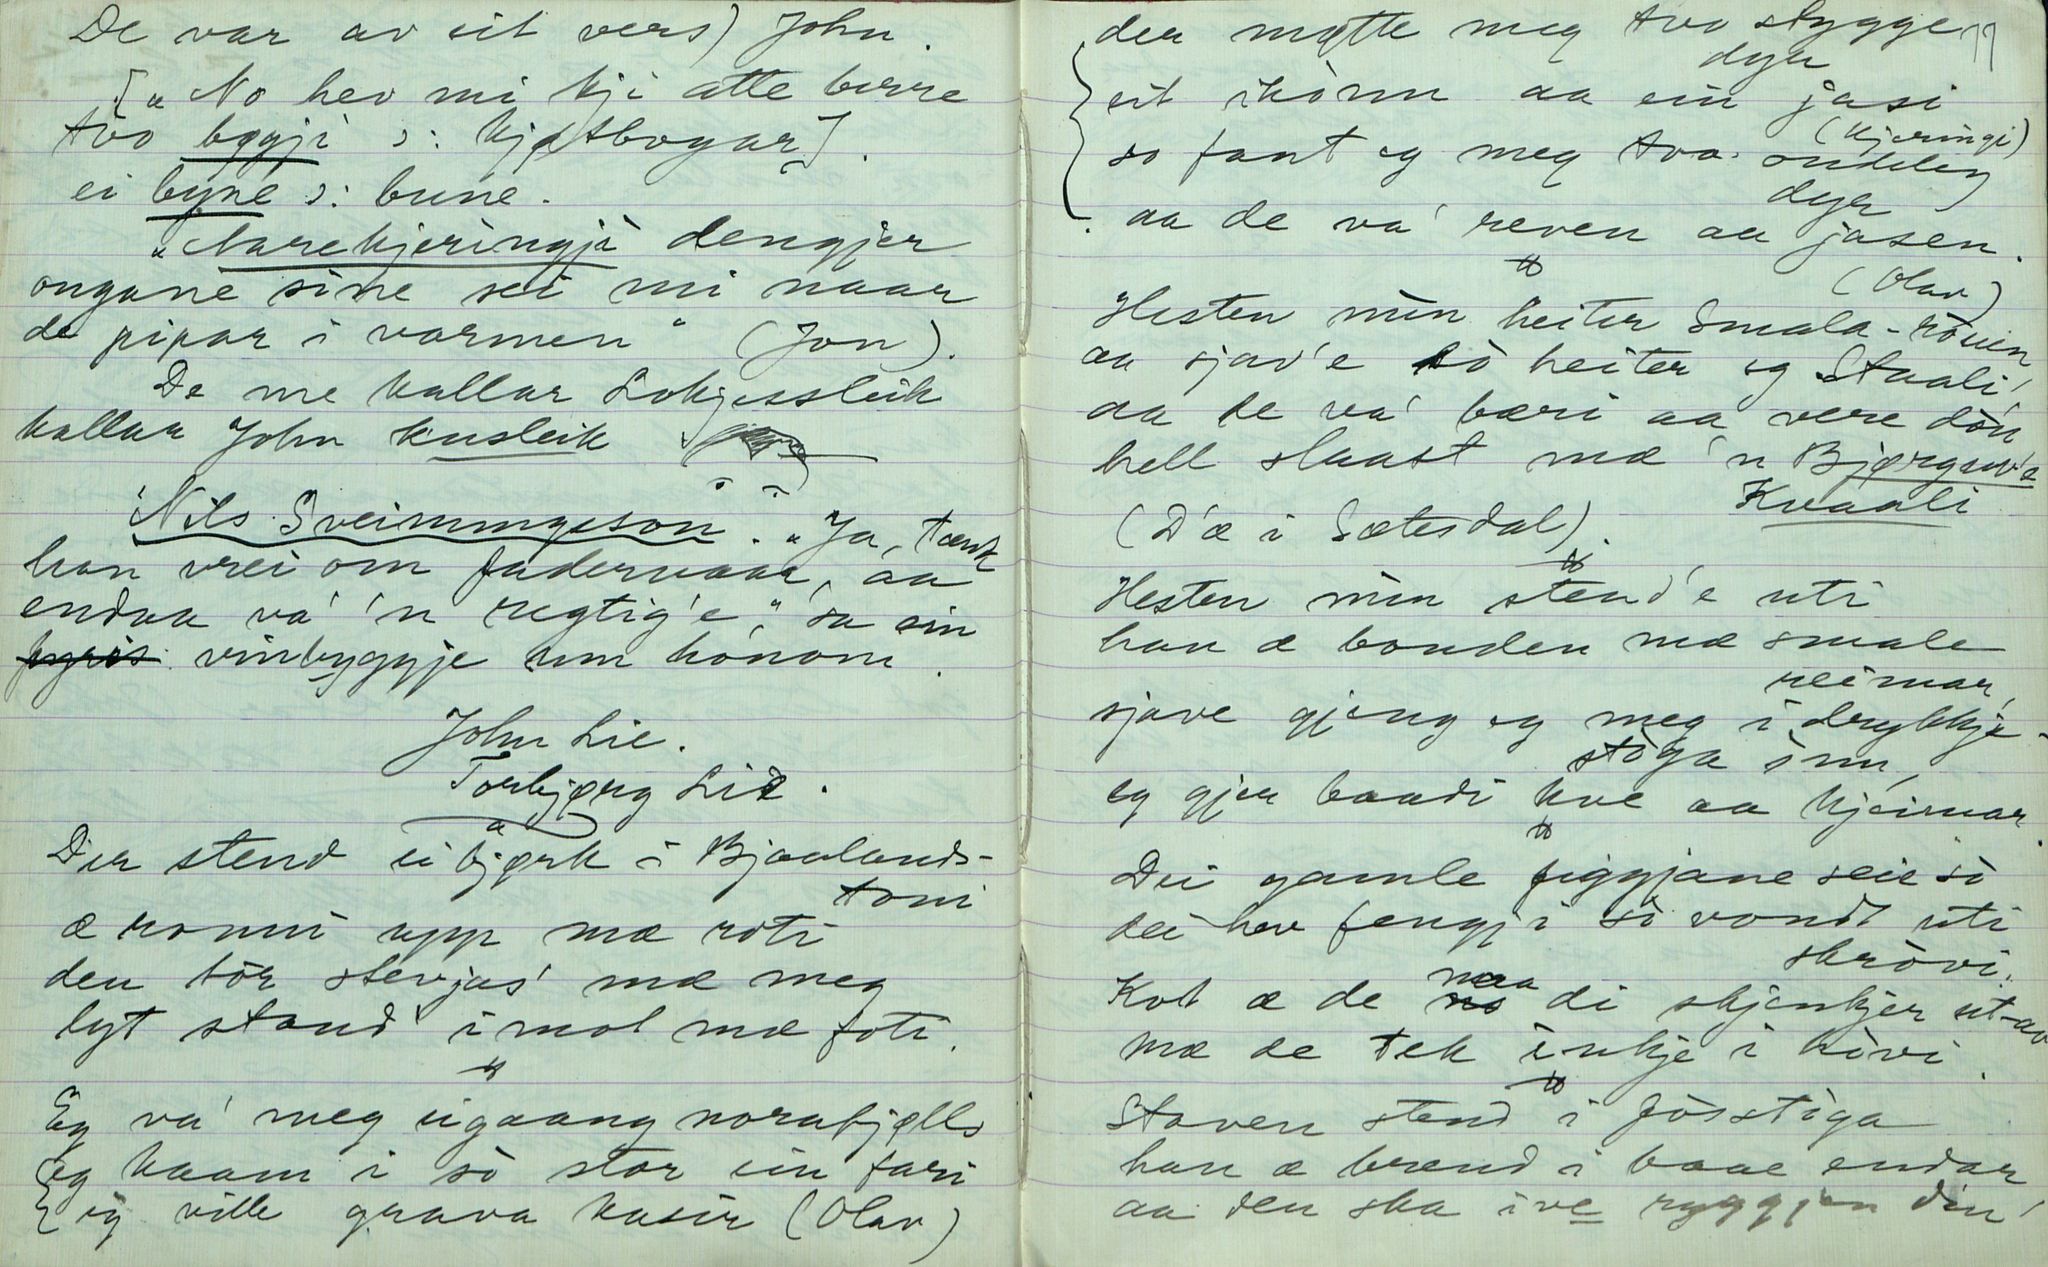 De var av eit vers) John.
["No hev mi kji atte berre
tvo bøgji ɔ: kjøtbogar].
ei byne ɔ: bune.
"Narekjeringji dengjer
ongane sine sei mi naar
de pipar i varmen" (Jon).
De me kallar Lokjessleik
kallar John kusleik
Nils Sveinungson. "Ja, tænk
han vrei om fadervaar, aa
endaa va' 'n regtig'e", sa ein
vinbyggje um honom.
John Lie.
Torbjørg Lie.
Der stend ei bjørk i Bjaalands-
toni
æ ronni upp mæ roti
den tòr stevjas' mæ meg
lyt stand' i mol mæ foti.
Eg va' meg eigaang norafjølls
eg kaam i sò stor ein fari
eg ville grava kasir (Olav)
der møtte meg tvo stygge
dyr
11
eit ikònn aa ein jasi
(kjeringi)
so fant eg meg tvo ondeleg
dyr
aa de va' reven aa jasen.
(Olav)
Hesten min heiter Smala-ròuen
aa sjav'e sò heiter eg Staali,
aa de va' bæri aa vere dòn
hell slaast mæ 'n Bjørgulv's
Kvaali
(D'æ i Sætesdal).
Hesten min stend'e uti
han æ bonden mæ smale
reimar,
sjave gjeng eg meg i drykkje-
stòga inn,
eg gjer baadi kve aa kjeimar.
Dei gamle piggjane seie sò
dei hev fengji sò vondt uti
skròvi.
Kot æ de maa di skjenkjer ut-av
mæ de tek inkje i hòvi.
Staven stend i fòsstòga
han æ brend i baae endar
aa den ska ive ryggjen din'